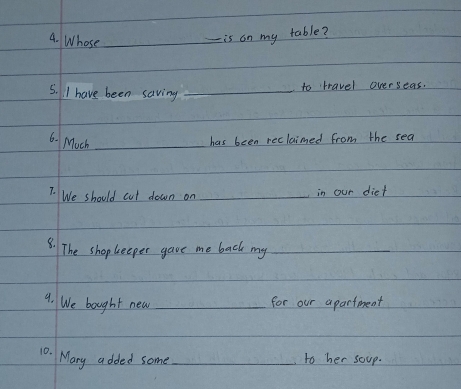 4. Whose ____________ is on my table?
5. I have been saving ____________ to travel overseas.
6. Much ____________ has been reclaimed from the sea
7. We should cut down on ____________ in our diet
8. The shopkeeper gave me back my ____________
9. We bought new ____________ for our apartment
10. Mary added some ____________ to her soup.